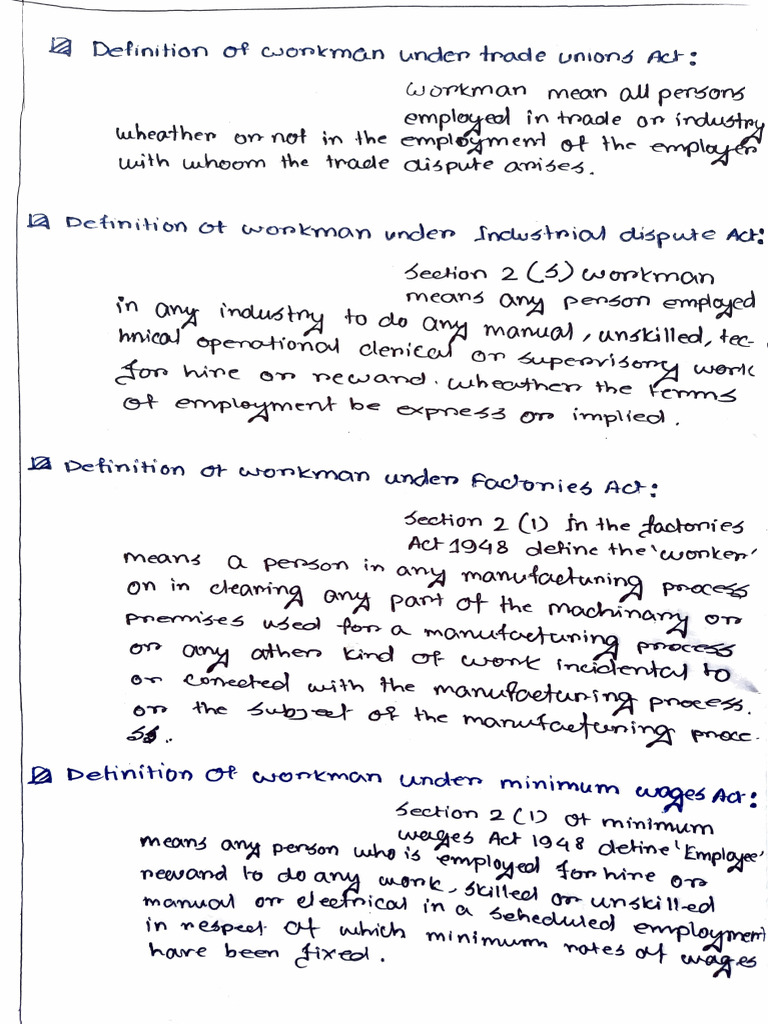 Definition of workman under trade unions Act:
workman mean all persons
employed in trade or industry
wheather or not in the employment of the employer
with whoom the trade dispute arises.
Definition of workman under Industrial dispute Act:
Section 2 (S) workman
means any person employed
in any industry to do any manual, unskilled, tec-
hnical operational clerical or supervisory work
for hire or reward. wheather the terms
of employment be express or implied.
Definition of workman under Factories Act:
Section 2 (1) in the factories
Act 1948 define the 'worker'
means a person in any manufacturing process
or in clearing any part of the machinary or
premises used for a manufacturing process
or any other kind of work incidental to
or conected with the manufacturing process.
or the subject of the manufacturing proce-
ss.
Definition of workman under minimum wages Act:
Section 2 (1) of minimum
wages Act 1948 define 'Employee'
means any person who is employed for hire or
reward to do any work, skilled or unskilled
manual or electrical in a scheduled employment
in respect of which minimum rates of wages
have been fixed.